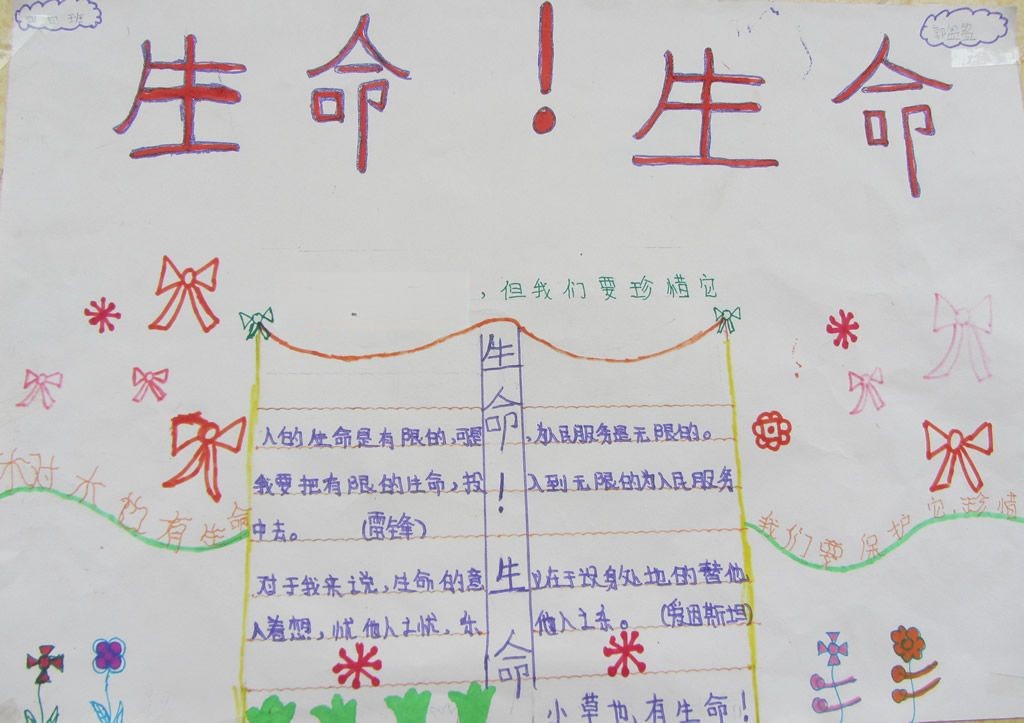 班
生命！生命
，但我们要珍惜它
生命！生命
人的生命是有限的，可是，为人民服务是无限的。
我要把有限的生命，投入到无限的为人民服务
中去。（雷锋）
对于我来说，生命的意义在于设身处地的替他
人着想，忧他人之忧，乐他人之乐。（爱因斯坦）
有生命
我们要保护它珍惜
小草也有生命！